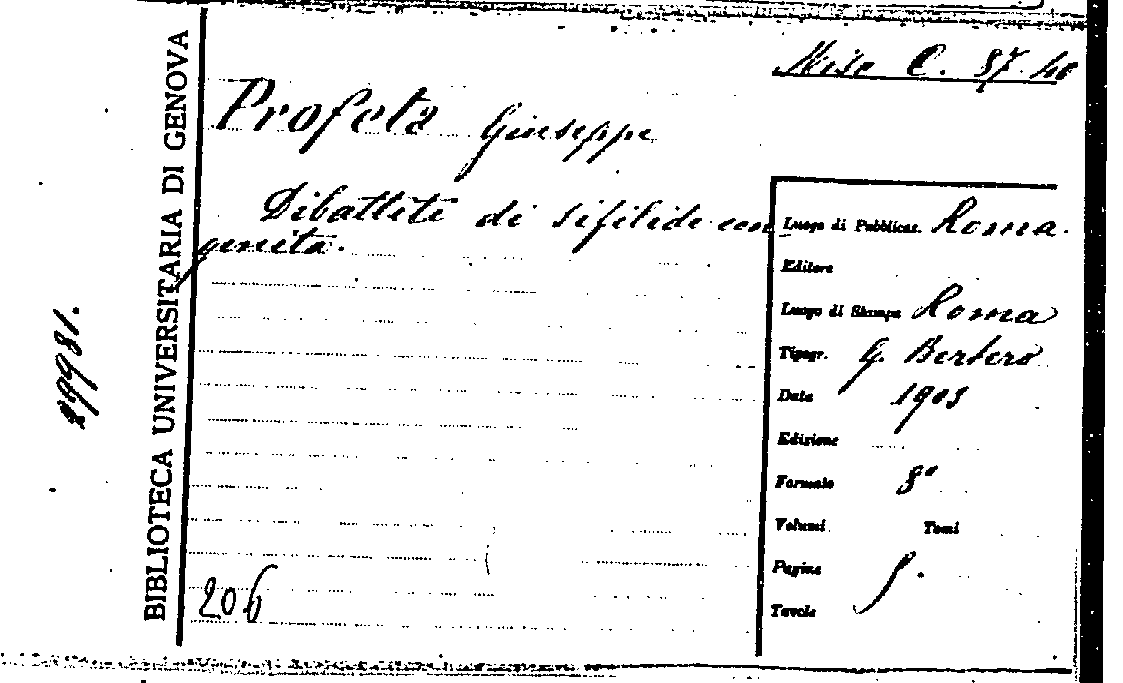 Misc C. 37. 46
Profeta Giuseppe
Dibattito di sifilide con-
genita.
BIBLIOTECA UNIVERSITARIA DI GENOVA
Luogo di Pubblicaz. Roma.
Editore
Luogo di Stampa Roma
Tipogr. G. Bertero
Data 1903
Edizione
Formato 8°
Volumi Tomi
Pagine
Tavole
206